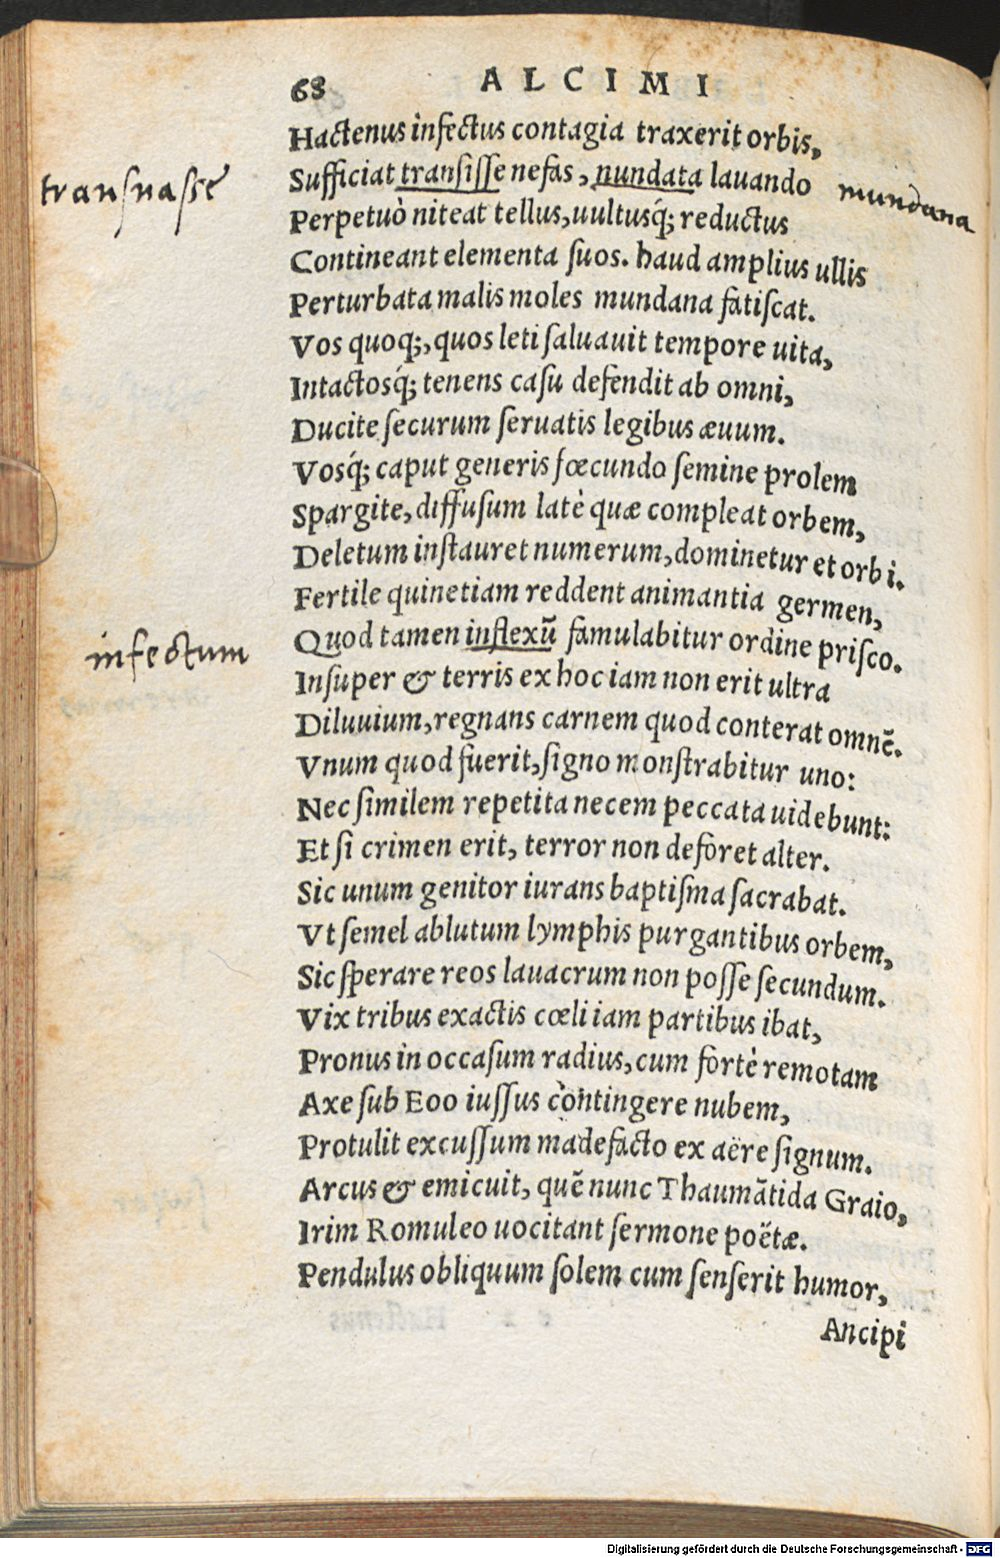 68 ALCIMI
Hactenus infectus contagia traxerit orbis,
transnasse
Sufficiat transisse nefas, nundata lauando
mundana
Perpetuò niteat tellus, uultusq́; reductus
Contineant elementa suos. haud amplius ullis
Perturbata malis moles mundana fatiscat.
Vos quoq;, quos leti saluauit tempore uita,
Intactosq́; tenens casu defendit ab omni,
Ducite securum seruatis legibus æuum.
Vosq́; caput generis fœcundo semine prolem
Spargite, diffusum latè quæ compleat orbem,
Deletum instauret numerum, dominetur et orbi.
Fertile quinetiam reddent animantia germen,
infectum
Quod tamen inflexũ famulabitur ordine prisco.
Insuper & terris ex hoc iam non erit ultra
Diluuium, regnans carnem quod conterat omnẽ.
Vnum quod fuerit, signo monstrabitur uno:
Nec similem repetita necem peccata uidebunt:
Et si crimen erit, terror non deforet alter.
Sic unum genitor iurans baptisma sacrabat.
Vt semel ablutum lymphis purgantibus orbem,
Sic sperare reos lauacrum non posse secundum.
Vix tribus exactis cœli iam partibus ibat,
Pronus in occasum radius, cum fortè remotam
Axe sub Eoo iussus còntingere nubem,
Protulit excussum madefacto ex aëre signum.
Arcus & emicuit, quẽ nunc Thaumãtida Graio,
Irim Romuleo uocitant sermone poëtæ.
Pendulus obliquum solem cum senserit humor,
Ancipi
Digitalisierung gefördert durch die Deutsche Forschungsgemeinschaft - DFG